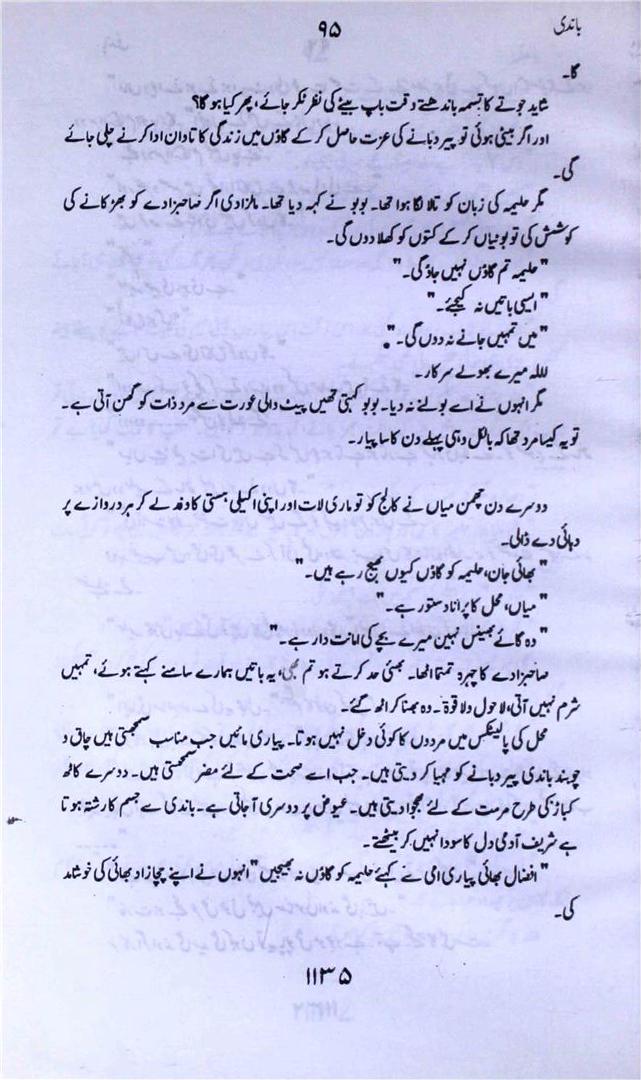 باندی ۹۵
گا۔
شاید جوتے کا تسمہ باندھتے وقت باپ بیٹے کی نظر ٹکرجائے، پھر کیا ہو گا؟
اور اگر بیٹی ہوئی تو پیر دبانے کی عزت حاصل کر کے گاؤں میں زندگی کا تاوان ادا کرنے چلی جائے
گی۔
مگر حلیمہ کی زبان کو تالا لگا ہوا تھا۔ بوبو نے کہہ دیا تھا۔ مالزادی اگر صاحبزادے کو بھڑکانے کی
کوشش کی تو بوٹیاں کر کے کتوں کو کھلا دوں گی۔
" حلیمہ تم گاؤں نہیں جاؤ گی۔ "
" ایسی باتیں نہ کیجئے۔ "
" میں تمہیں جانے نہ دوں گی۔ "
للہ میرے بھولے سرکار۔
مگر انہوں نے اے بولنے نہ دیا۔ بوبو کہتی تھیں پیٹ والی عورت سے مرد ذات کو گھن آتی ہے۔
تو یہ کیسا مرد تھا کہ بالکل وہی پہلے دن کا سا پیار۔
دوسرے دن چھمن میاں نے کالج کو تو ماری لات اور اپنی اکیلی ہستی کا وفد لے کر ہر دروازے پر
دہائی دے ڈالی۔
" بھائی جان، حلیمہ کو گاؤں کیوں بھیج رہے ہیں۔ "
" میاں، محل کا پرانا دستور ہے۔ "
" وہ گائے بھینس نہین میرے بچے کی امانت دار ہے۔ "
صاحبزادے کا چہرہ تمتما اٹھا۔ بھئی حد کرتے ہو تم بھی، یہ باتیں ہمارے سامنے کہتے ہوئے، تمہیں
شرم نہیں آتی، لاحول ولاقوۃ۔ وہ بھنا کر اٹھ گئے۔
محل کی پالیٹکس میں مردوں کا کوئی دخل نہیں ہوتا۔ پیاری مائیں جب مناسب سمجھتی ہیں چاق و
چوبند باندی پیر دبانے کو مہیا کر دیتی ہیں۔ جب اے صحت کے لئے مضر سمجھتی ہیں۔ دوسرے کاٹھ
کباڑ کی طرح مرمت کے لئے بھجوا دیتی ہیں۔ عیوض پر دوسری آ جاتی ہے۔ باندی ے جسم کا رشتہ ہوتا
ہے شریف آدمی دل کا سودا نہیں کر بیٹھتے۔
" افضال بھائی پیاری امی نے کہئے حلیمہ کو گاؤں نہ بھیجیں " انہوں نے اپنے چچازاد بھائی کی خوشامد
کی۔
۱۱۳۵